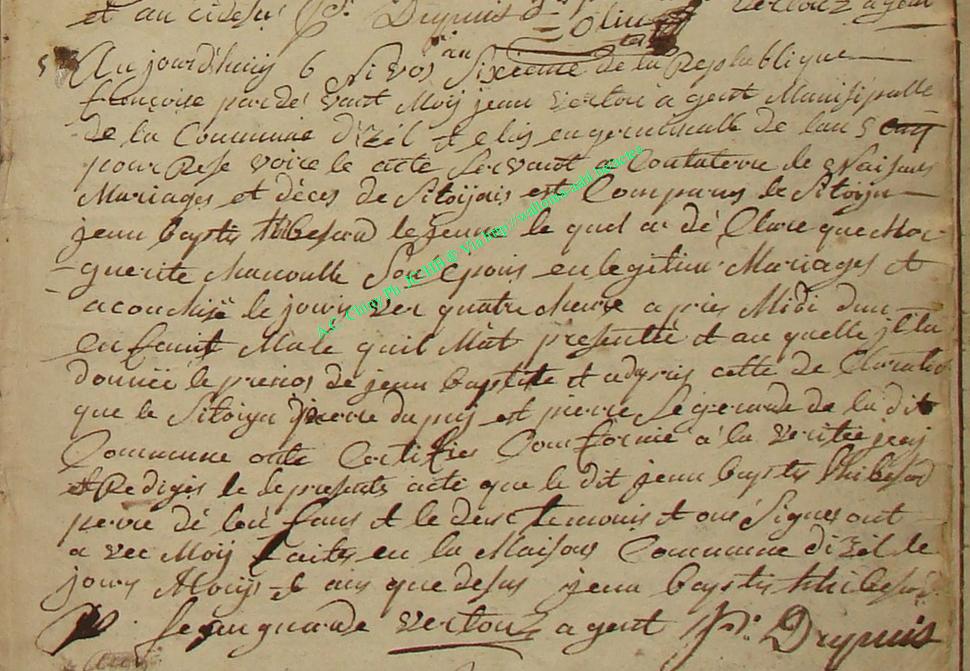 et au cidesus P. Dupuis vertouz agent
5 Aujourd'huij 6 Nivos an Sixieme de la Republique
françoise pardevant Moij jean vertou agent Munisipalle
de la Commune d'izil et elis en germinalle de lan 5
pour Resevoire le acte Servant a Contaterre le Naisans
Mariages et déces de Sitoijois est Comparus le Sitoijn
jean baptis thibesard le jeune le quel a dé Clare que Mar
guerite Manvulle Son Epouis en legitim Mariages et
acouchiè le jours ver quatre cheure apries Midi dun
enfaint Male quil Mat presenteè et au quelle jl la
donneè le prenos de jean baptiste et adpris cette de Claratio
que le Sitoijn pierre dupuis et pierre Segerarde de la dit
Commune onte Certifies Comforme a la veriteè jeaij
et Rediges le depresents acte que le dit jean baptis thibesard
perre dé len fans et le deus temonis et one Signes ont
a vec Moij faites en la Maison Commune dizil le
jours Moijs et ans que desus jean baptis thibesard
p Segunguarde vertouz agent P. Drupuis
A.C. Chiny Ph. JCHH @ Via http://wallonia-asbl.agacies